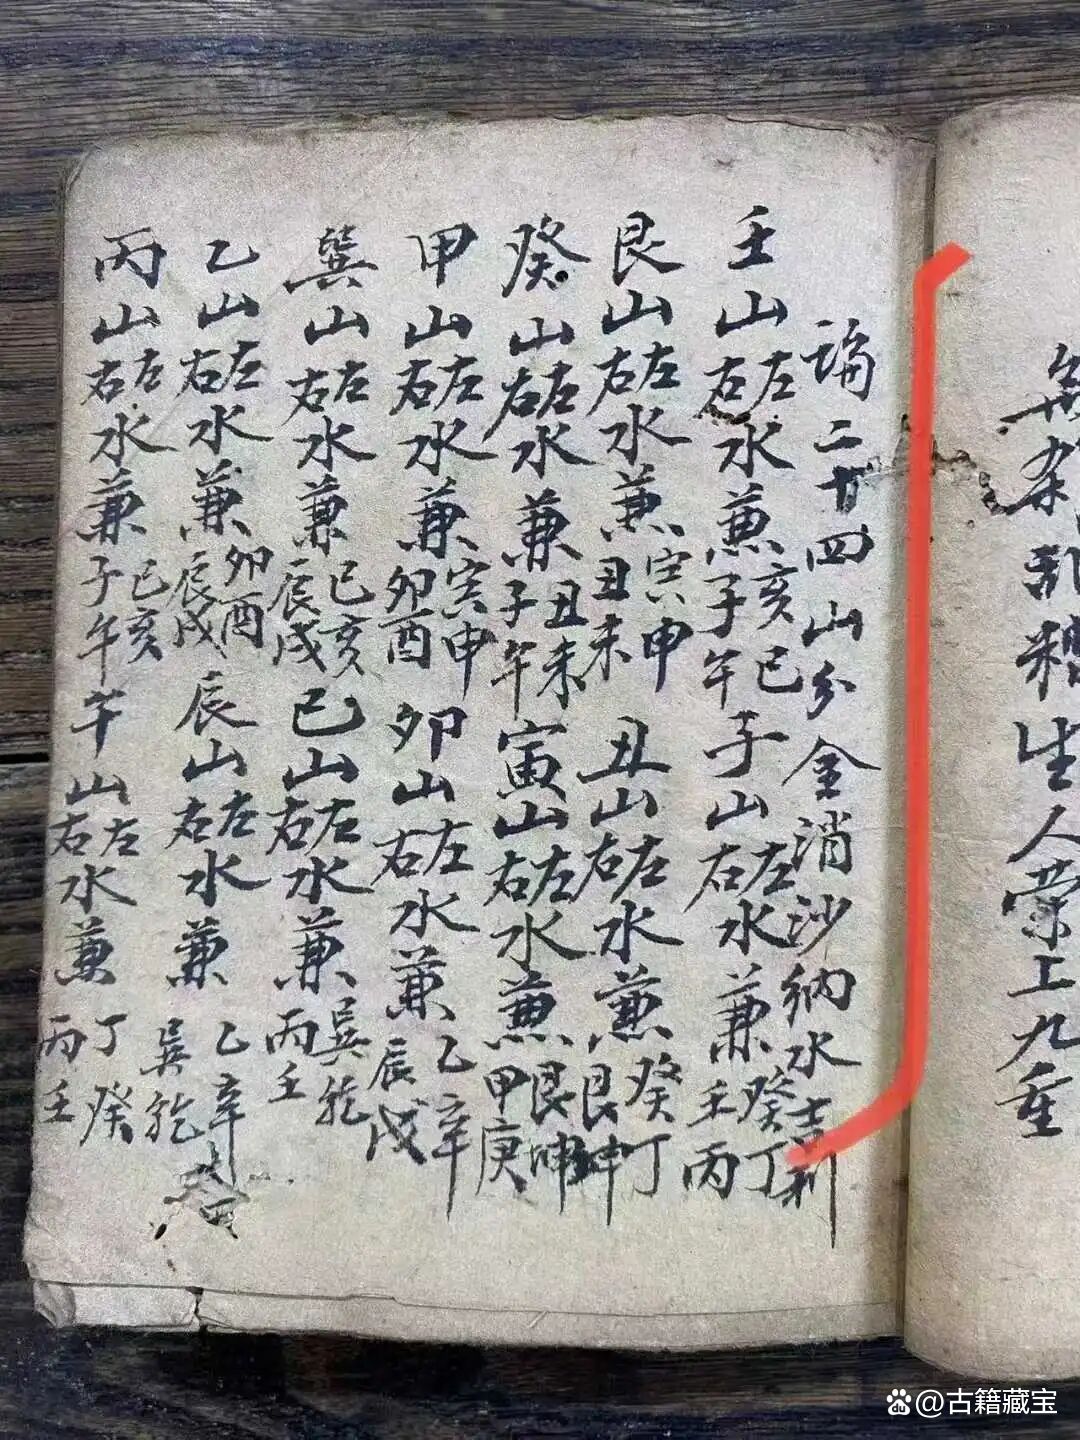 無杂乱糟生人荣上九重
論二十四山分金消沙纳水吉利
壬山左右水兼亥巳子午子山左右水兼癸丁壬丙
艮山左右水兼寅申丑未丑山左右水兼癸丁艮坤
癸山左右水兼丑未子午寅山左右水兼艮坤甲庚
甲山左右水兼寅申卯酉卯山左右水兼乙辛辰戌
巽山左右水兼巳亥辰戌巳山左右水兼巽乾丙壬
乙山左右水兼卯酉辰戌辰山左右水兼乙辛巽乾
丙山左右水兼巳亥子午午山左右水兼丁癸丙壬
@古籍藏宝